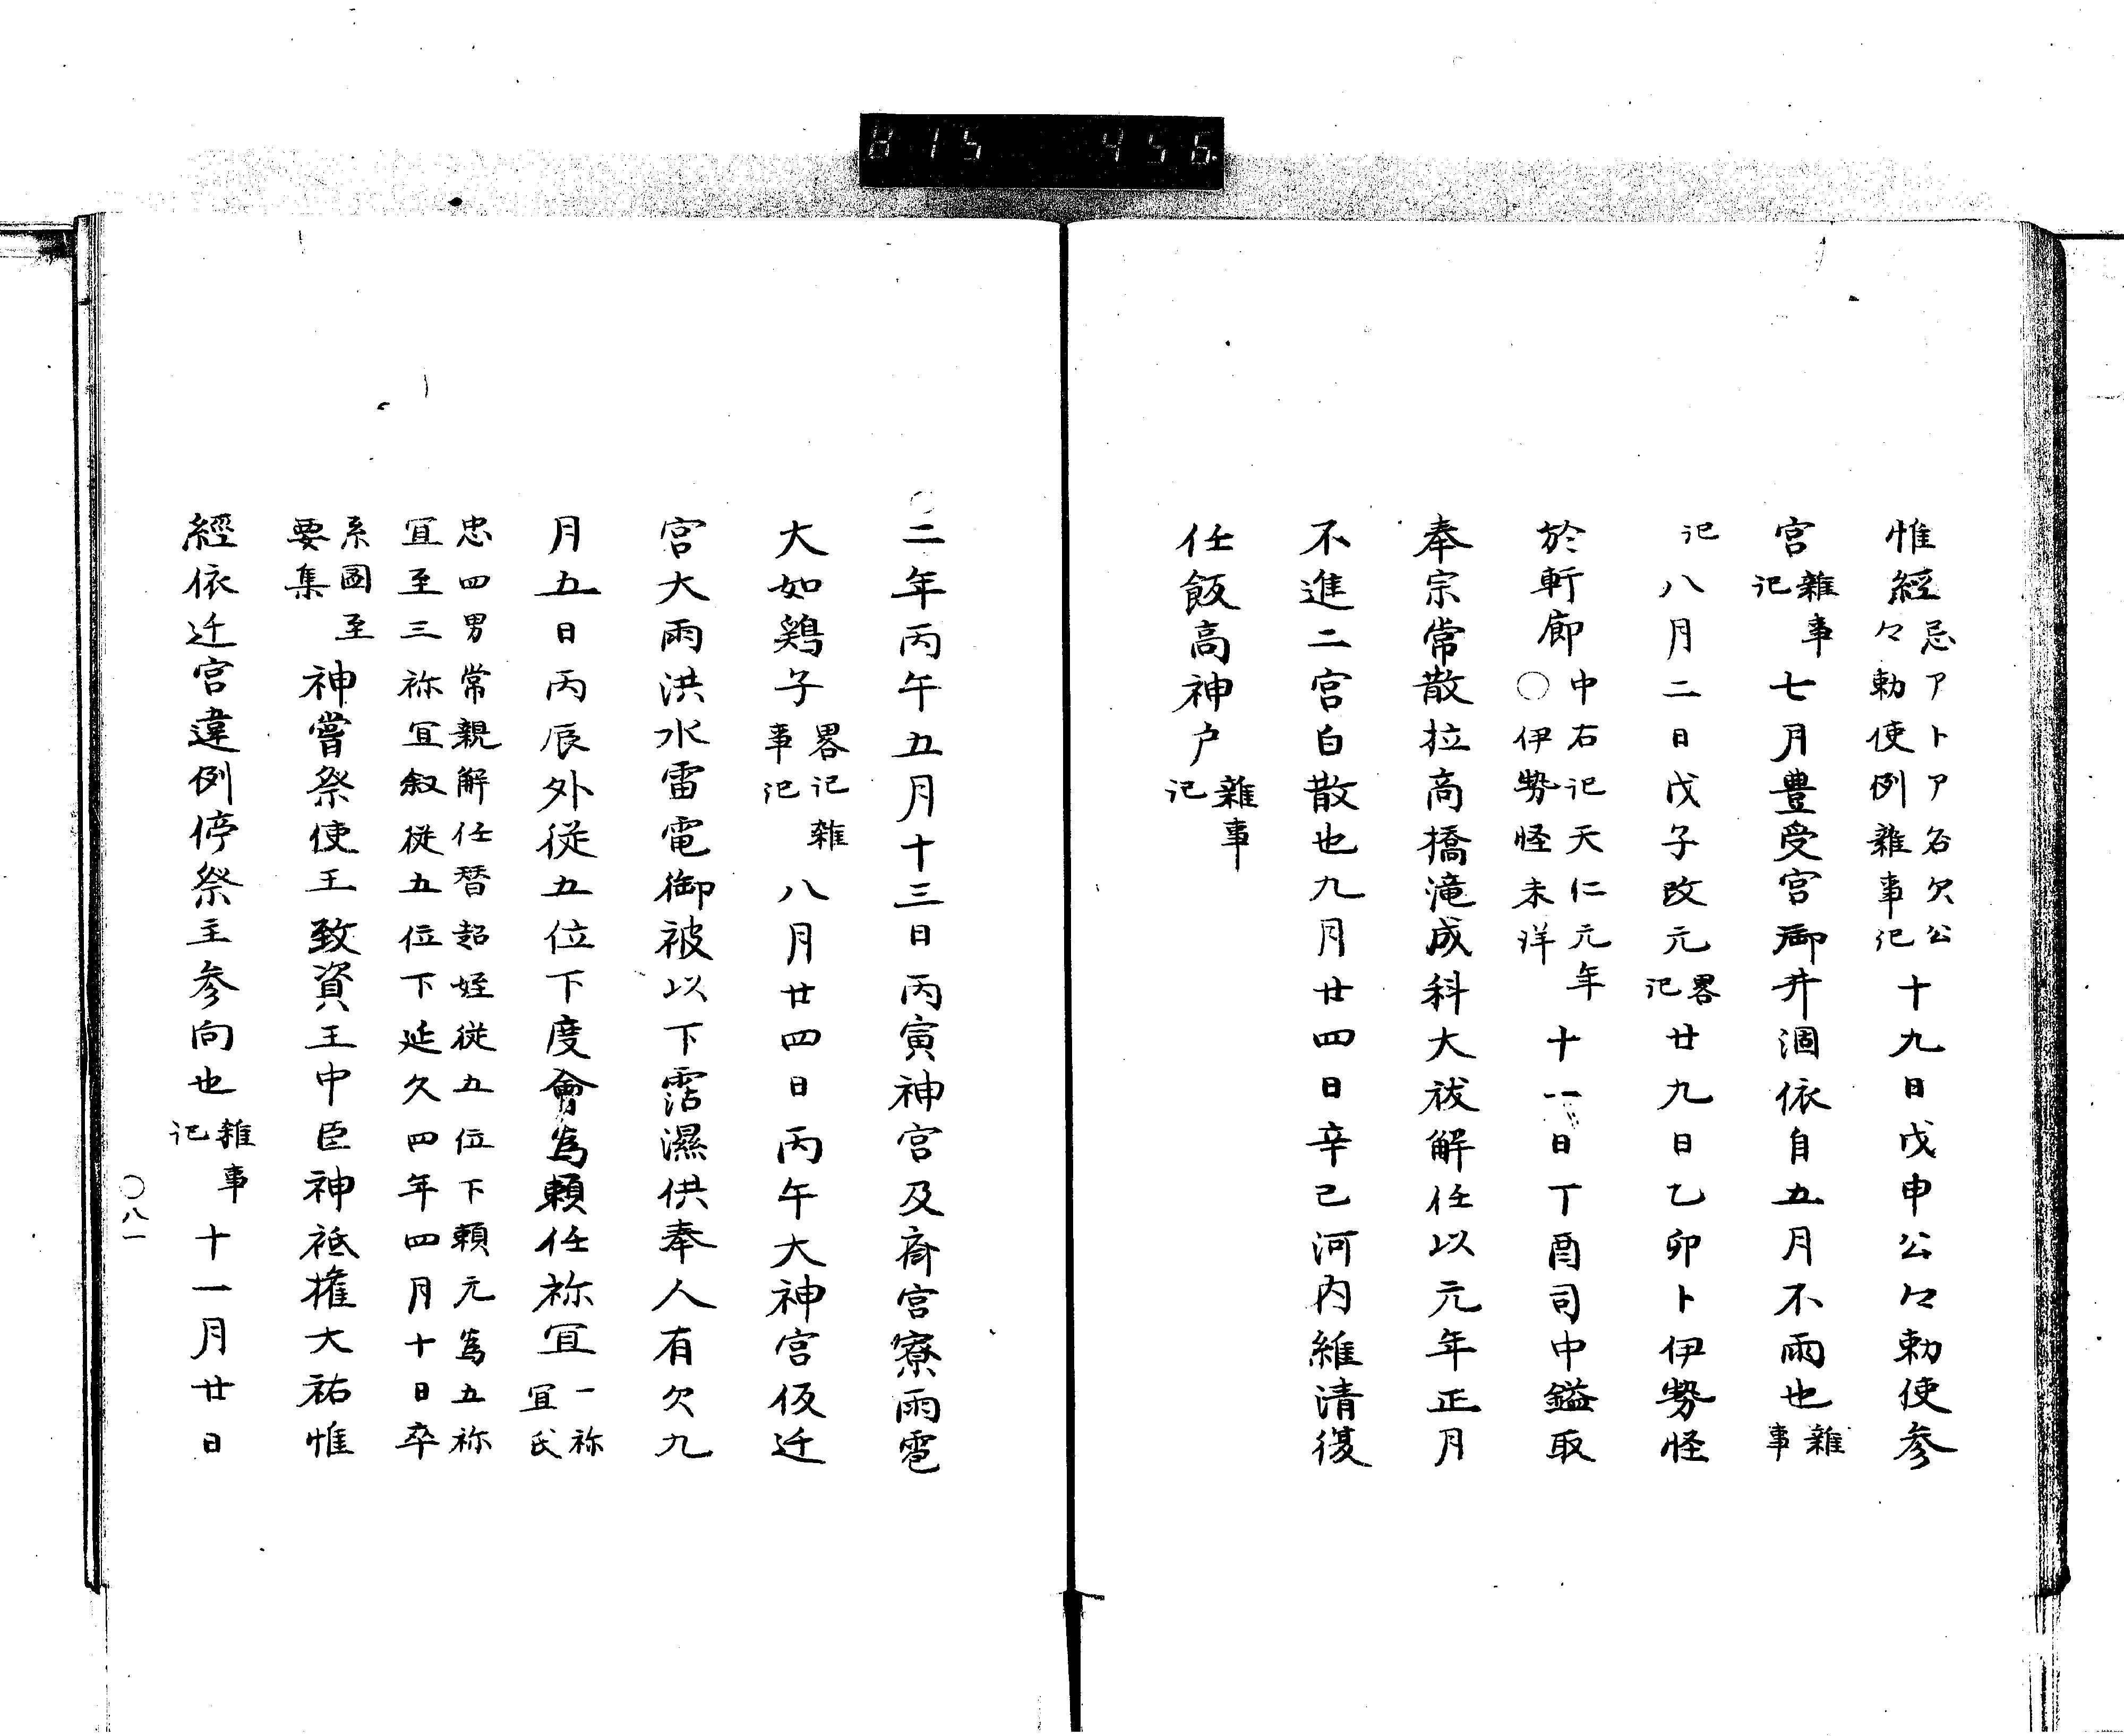 815 456
惟經忌アトア名欠公々勅使例雜事記十九日戊申公々勅使参
宮雜事記七月豊受宮御井涸依自五月不雨也雜事
記八月二日戊子改元畧記廿九日乙卯卜伊勢怪
於軒廊中右記天仁元年〇伊勢怪未洋十一日丁酉司中鎰取
奉宗常散位高橋滝成科大祓解任以元年正月
不進二宮白散也九月廿四日辛己河内維清復
任飯高神户雜事記
〇二年丙午五月十三日丙寅神宮及斎宮寮雨雹
大如鷄子畧记雜事記八月廿四日丙午大神宮仮迁
宮大雨洪水雷電御被以下霑濕供奉人有欠九
月五日丙辰外従五位下度會為頼任祢冝一祢冝氏
忠四男常親解任替超姪従五位下頼元為五祢
冝至三祢冝叙従五位下延久四年四月十日卒
系圖至要集神嘗祭使王致資王中臣神祗権大祐惟
經依迁宮違例停祭主参向也雜事記十一月廿日
〇八一